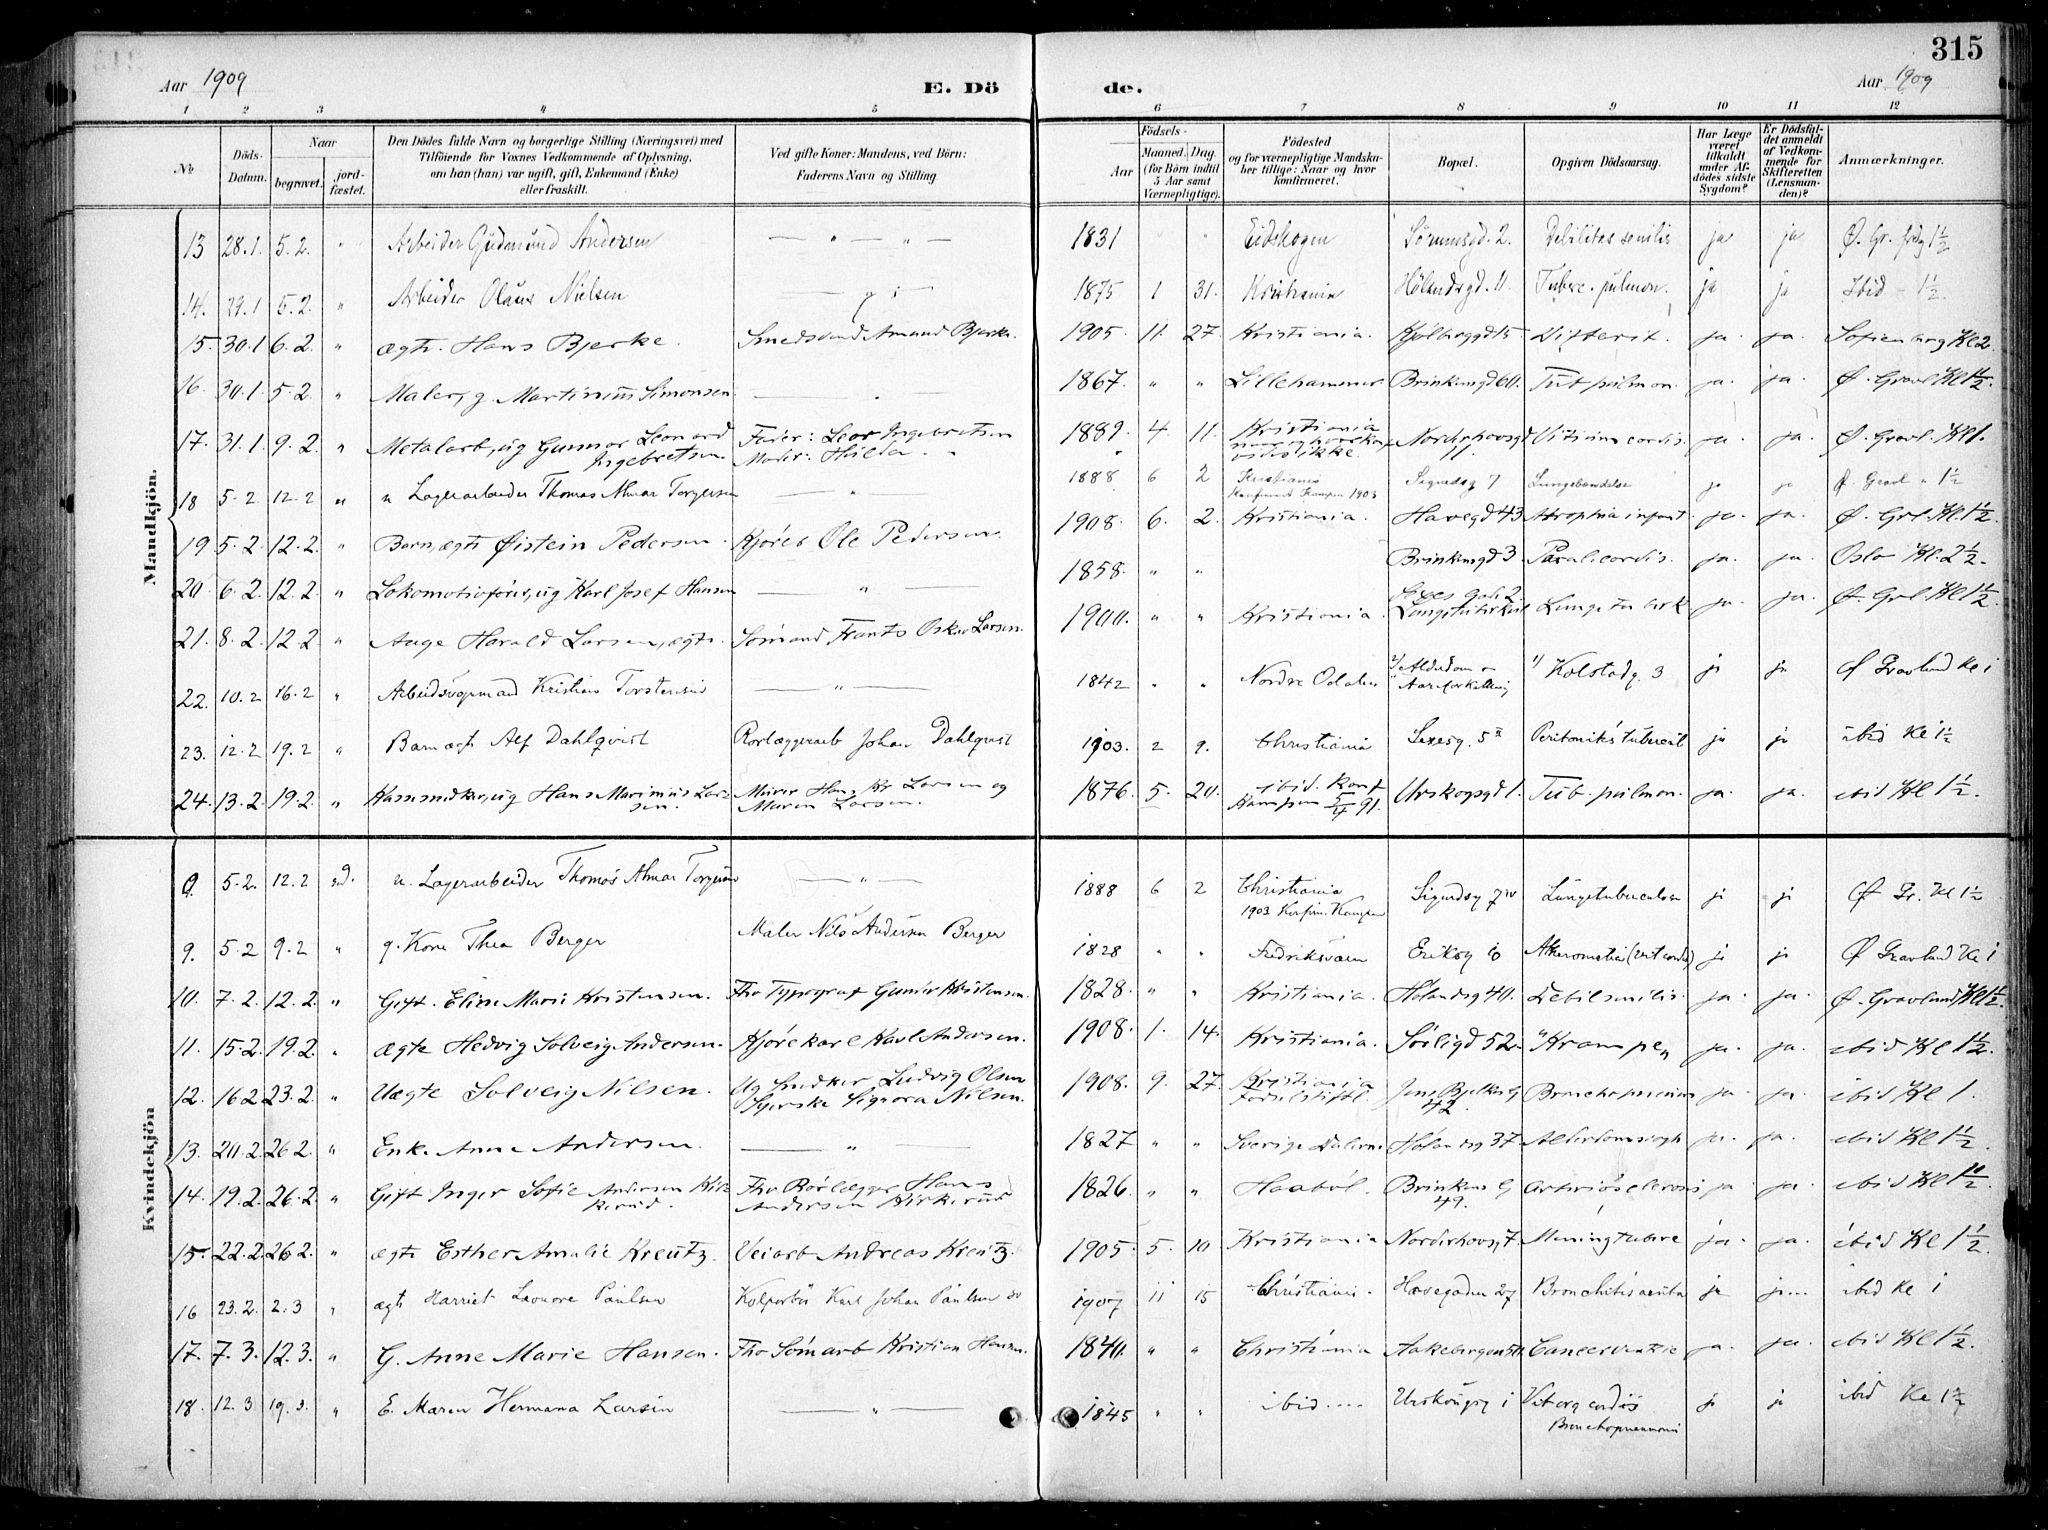 315
Aar 1909 E. Döde. Aar 1909
1 2 3 4 5 6 7 8 9 10 11 12
No
Döds-Datum.
Naar
begravet.
jordfæstet.
Den Dödes fulde Navn og borgerlige Stilling (Næringsvei) med
Tilföiende for Voxnes Vedkommende af Oplysning,
om han (hun) var ugift, gift, Enkemand (Enke)
eller fraskilt.
Ved gifte Koner: Mandens, ved Börn:
Faderens Navn og Stilling
Födsels-
Aar
Maaned. Dag.
(for Börn indtil
5 Aar samt
Værnepligtige).
Födested
og for værnepligtige Mandskaber
tillige: Naar og hvor
konfirmeret.
Bopæl.
Opgiven Dödsaarsag.
Har Læge
været
tilkaldt
under Afdödes
sidste
Sygdom?
Er Dödsfaldet
anmeldt
af Vedkommende
for
Skifteretten
(Lensmanden)?
Anmærkninger.
Mandkjön.
13 28.1. 5.2. " Arbeider Gudmund Andersen — " — " — 1831 " " Eidskogen Sörumsgd. 2. Debilitas senilis ja ja Ø. Gr. 1½
14. 29.1 5.2. " Arbeider Olaus Nielsen 1875 1 31. Kristiania Hölandsgd. 11. Tuberc. pulmon. ja ja Ibid - 1½.
15. 30.1 6.2. " ægte. Hans Bjerke. Smedsvend Amund Bjerke. 1905. 11. 27. Kristiania. Kjölberggd 15 Difterit. ja. ja. Sofienberg Kl 2.
16. 30.1. 5.2. " Maler, g. Martinius Simonsen. 1867. " " Lillehammer. Brinkensgd 60. Tub pulmon. ja. ja. Ø. Gravl Kl 1½.
17. 31.1. 9.2. " Metalarb, ug Gunnar Leonard Ingebretsen. Fader: Leor Ingebretsen Moder: Hulda 1889. 4. 11. Kristiania vides ikke. Nordrehovsgd 11. Vitium cordis. ja. ja. Ø. Gravl. Kl 1.
18 5.2 12.2 " u Lagerarbeider Thomas Almar Torgersen — " — 1888 6 2 Kristiania Konfirmert Kampen 1903 Sigurdsg 7 Lungebetændelse ja ja Ø. Gravl " 1½
19 5.2. 12.2. " Barn, ægte Øistein Pedersen. Kjöreb Ole Pedersen. 1908. 6. 2. Kristiania. Havegd 43 Atrophia infant. ja. ja. Ø. Grl. Kl. 1½.
20. 6.2. 12.2. " Lokomotivförer, ug Karl Josef Hansen — " — 1858. " " Brinkensgd 3 Paral. cordis. ja. ja. Oslo Kl. 2½.
21. 8.2. 12.2. " Aage Harald Larsen, ægte. Sömand Frants Oskar Larsen. 1900. " " Kristiania. Lungetuberkel Lungetuberk ja. ja. Ø. Grl Kl 1½.
22. 10.2 16.2 " Arbeidsformand Kristian Torstensen — " — 1842 " " Nordre Odalen Alderdom Aareforkalkning Kolstadg. 3 ja ja Ø Gravlund Kl 1
23. 12.2 19.2 " Barn ægte Alf Dahlqvist Rörlæggerarb Johan Dahlqvist 1903. 2 9. Christiania Saxesg. 5 Peritonitis tubercul ja ja ibid Kl 1½
24. 13.2. 19.2. " Kammaker, ug Hans Marinius Larsen. Murer Hans Kr Larsen og Maren Larsen. 1876. 5. 20. ibid. konf Kampen 5/4 91. Urskogsgd 1. Tub. pulmon. ja. ja. ibid Kl 1½.
Kvindekjön
5.2. 12.2 u. Lagerarbeider Thomas Almar Torgersen — " — 1888 6 2 Christiania 1903 Konfirm. Kampen Sigurdsg 7 Lungetuberculose ja ja Ø Gr. Kl 1½
9. 5.2 9.2 " g. Kone Thea Berger Maler Nils Andersen Berger 1828 " " Fredriksværn Eriksg 10 Atheromatie (vit cordis) ja ja Ø Gravlund Kl 1
10. 7.2. 12.2. " Gift. Eline Marie Kristensen. Fhv Typograf Gunder Kristensen. 1828. " " Kristiania. Hölandsg 40. Debil senilis. ja. ja. Ø. Gravlund Kl 1½.
11. 15.2. 19.2. " ægte Hedvig Solveig Andersen. Kjörekarl Karl Andersen. 1908. 1. 14. Kristiania. Sörligd 52. "Krampe" ja. ja. ibid Kl 1½.
12. 16.2 23.2. " Uægte Solveig Nilsen. Ug Snedker Ludvig Olsen Syerske Signora Nilsen. 1908. 9. 27. Kristiania Födselstiftl. Jens Bjelkes G 42. Bronchopneumoni ja. ja. ibid Kl 1.
13. 20.2. 26.2. " Enke Anne Andersen. — " — 1827 " " Sverige Dalarne Hölandsg 37 Alderdomssvagh ja. ja. ibid Kl 1½.
14. 19.2. 26.2. " Gift Inger Sofie Andersen Kirkerud. Fhv Rörlegger Hans Andersen Kirkerud 1826. " " Haaböl. Brinkens G 49. Arteriosclerosis ja ja. ibid Kl 1½.
15. 22.2. 26.2. " ægte Esther Amalie Kreutz. Veiarb Andreas Kreutz. 1905. 5. 10 Kristiania Nordrehovsg, 7. Meningtuberc ja. ja. ibid Kl 1½.
16 23.2. 2.3 " ægte Harriet Leonore Paulsen Kolportör Karl Johan Paulsen 1907 11 15 Christiania. Havegaden 27 Bronchitis acuta ja ja ibid Kl 1
17. 7.3. 12.3. " G. Anne Marie Hansen. Fhv Sömarb Kristian Hansen. 1840. " " Christiania Aakebergveien 50. Cancer ventric ja. ja. ibid Kl 1½.
18. 12.3 19.3. " E. Maren Hermana Larsen — " — 1845 " " ibid .... Urskougsg 1 Vit org cordis Bronchopneumoni ja ja ibid Kl 1½